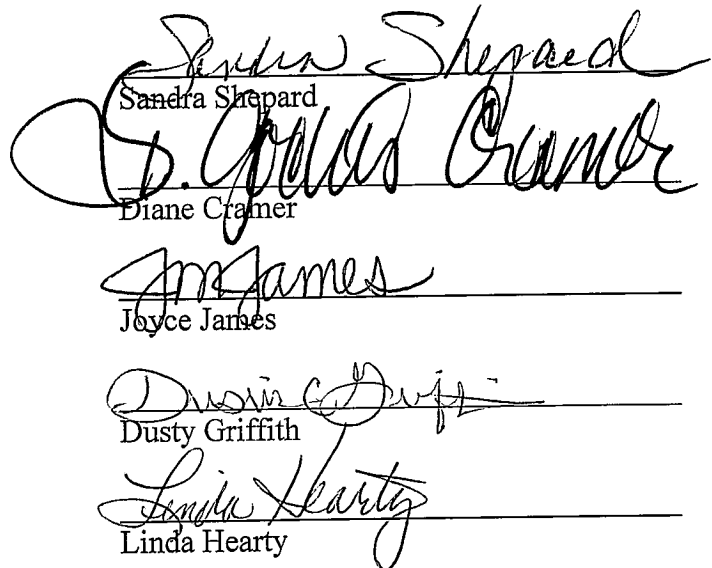 Sandra Shepard
Sandra Shepard
D. Cramer
Diane Cramer
Jm James
Joyce James
Dusty Griffith
Linda Hearty
Linda Hearty